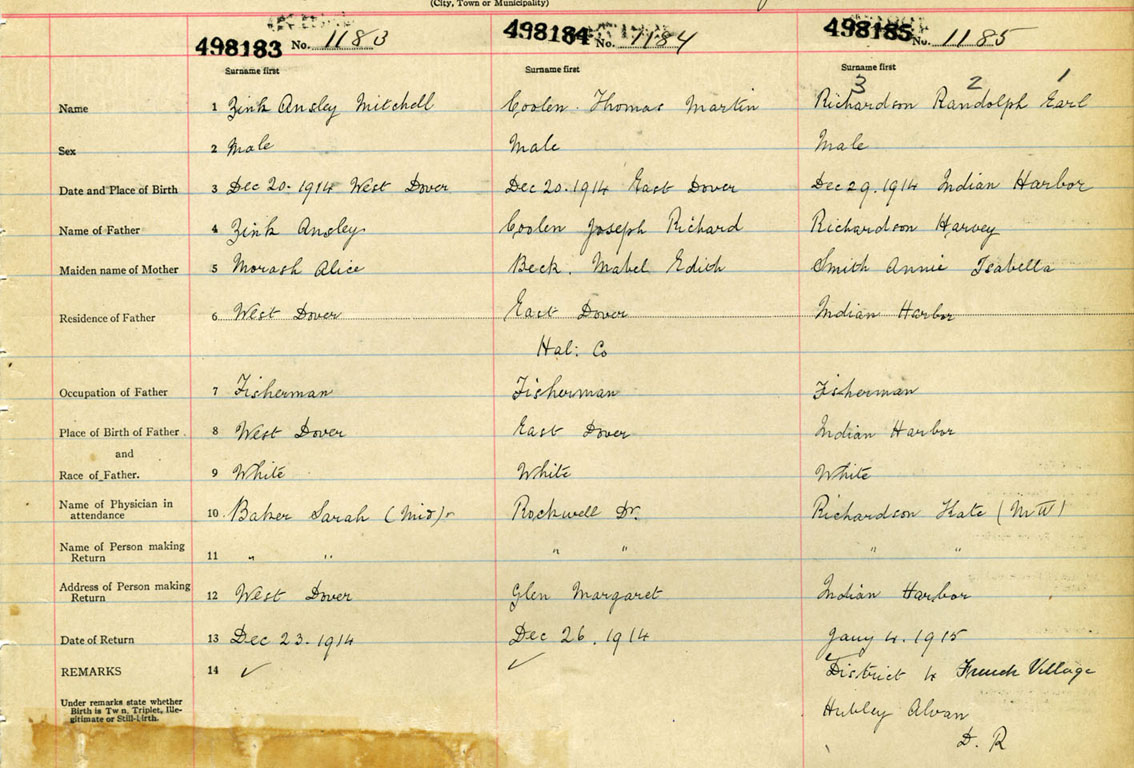 (City, Town or Municipality)
498183 No. 1183 498184 No. 1184 498185 No. 1185
Surname first Surname first Surname first
3 2 1
Name 1 Zink Ansley Mitchell Coolen Thomas Martin Richardson Randolph Earl
Sex 2 Male Male Male
Date and Place of Birth 3 Dec 20. 1914 West Dover Dec 20. 1914 East Dover Dec 29. 1914 Indian Harbor
Name of Father 4 Zink Ansley Coolen Joseph Richard Richardson Harvey
Maiden name of Mother 5 Morash Alice Beck. Mabel Edith Smith Annie Isabella
Residence of Father 6 West Dover East Dover Indian Harbor
Hal: Co
Occupation of Father 7 Fisherman Fisherman Fisherman
Place of Birth of Father 8 West Dover East Dover Indian Harbor
and
Race of Father. 9 White White White
Name of Physician in
attendance 10 Baker Sarah (Mid) Rockwell Dr. Richardson Kate (M W)
Name of Person making
Return 11 " " " " " "
Address of Person making
Return 12 West Dover Glen Margaret Indian Harbor
Date of Return 13 Dec 23. 1914 Dec 26. 1914 Jany 4. 1915
REMARKS 14 ✓ ✓ ✓ District 4 French Village
Under remarks state whether
Birth is Twin, Triplet, Ille-
gitimate or Still-birth.
Hubley Alvan
D. R